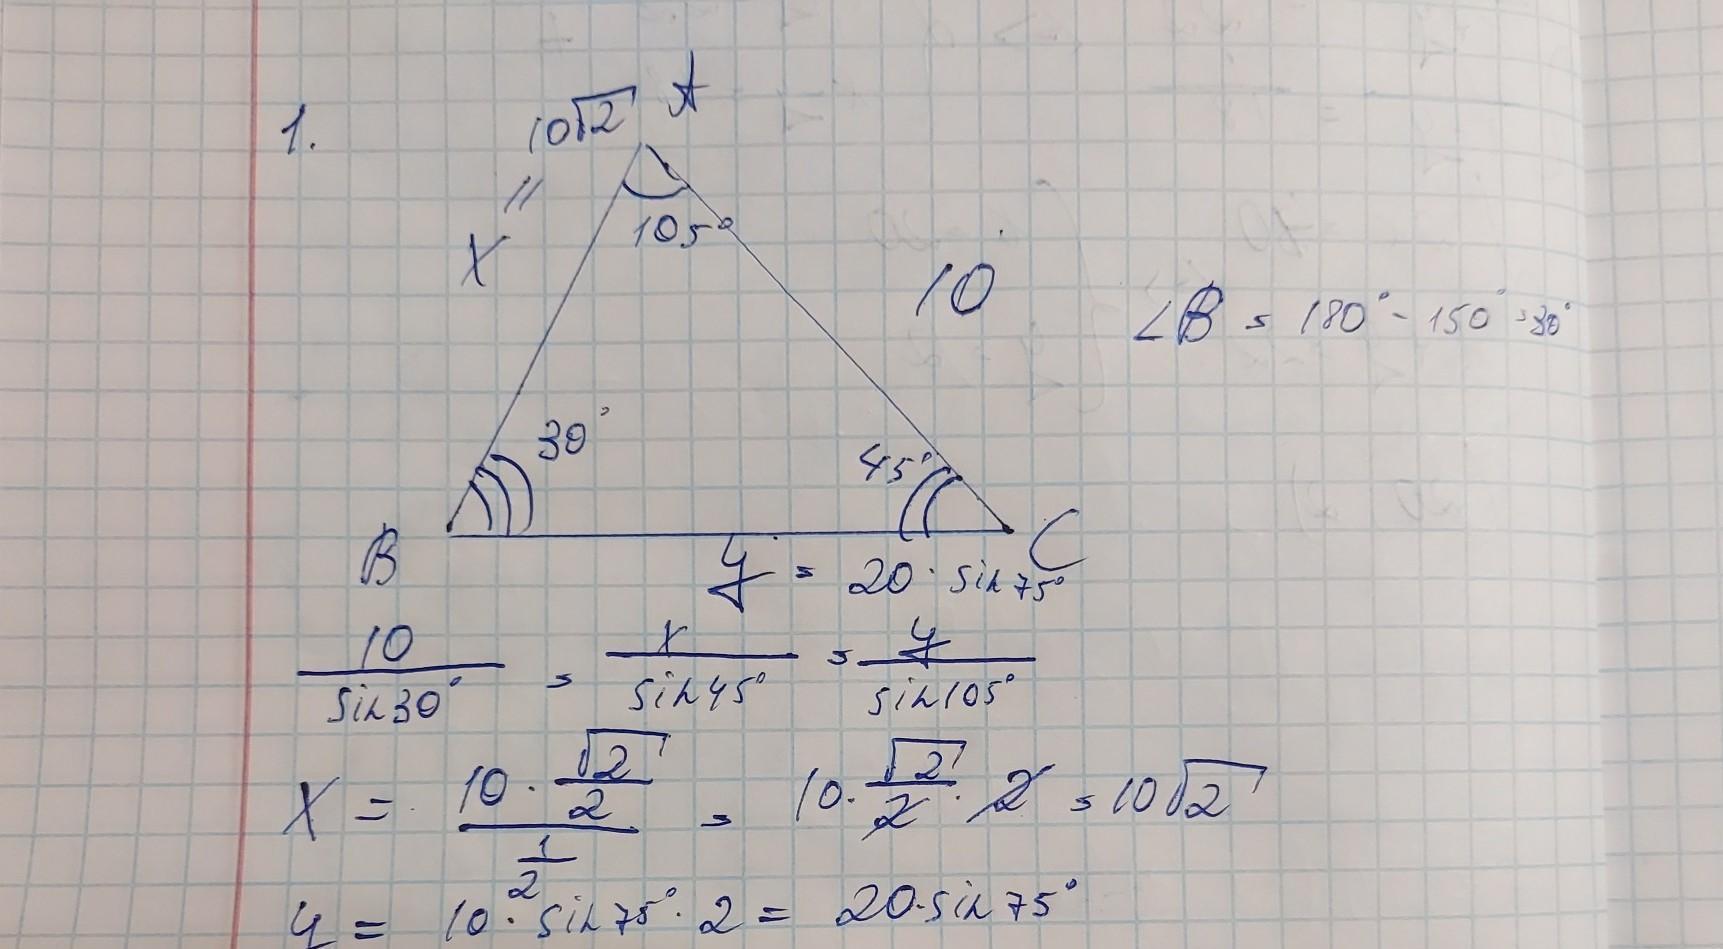 1.
10√2 A
"
X
105°
10
∠B = 180° - 150° = 30°
30°
45°
B
C
y = 20 · sin 75°
10/sin30° = x/sin45° = y/sin105°
X = (10 · √2/2)/(1/2) = 10 · √2/2 · 2 = 10√2
y = 10 · sin 75° · 2 = 20 · sin 75°